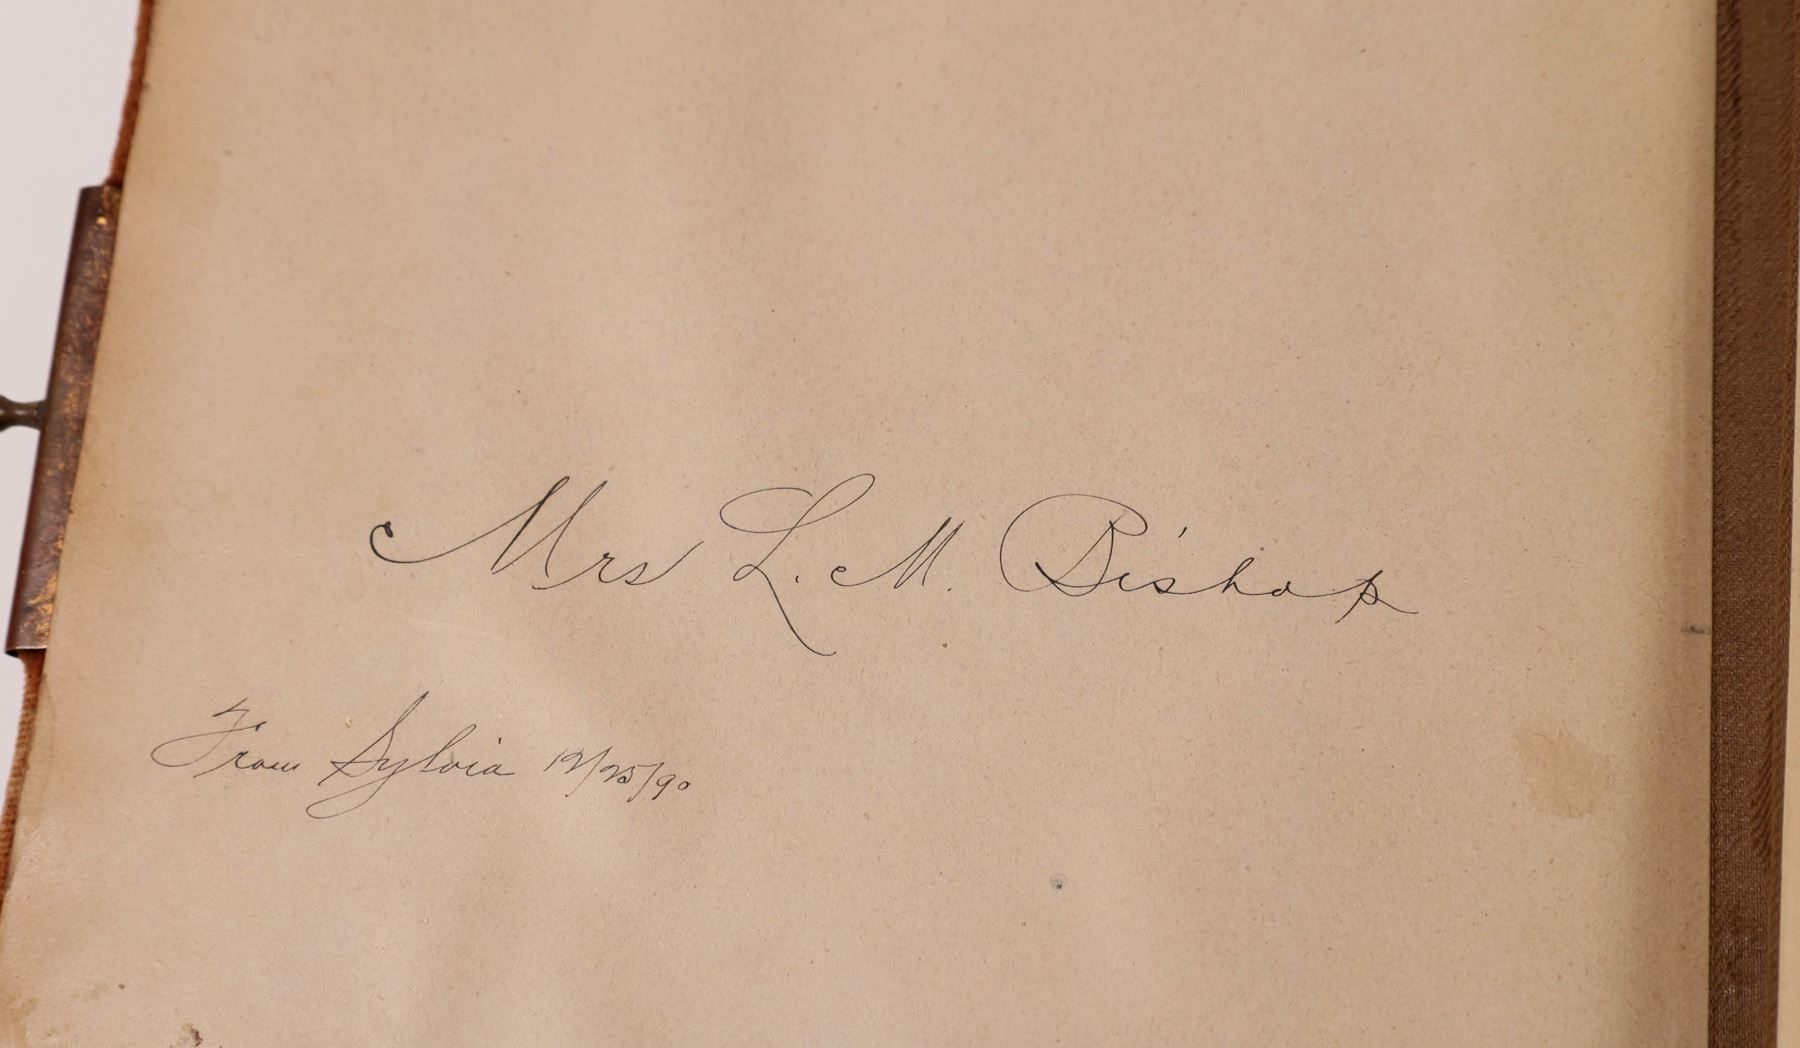 Mrs L. M. Bishop
From Sylvia 12/25/90